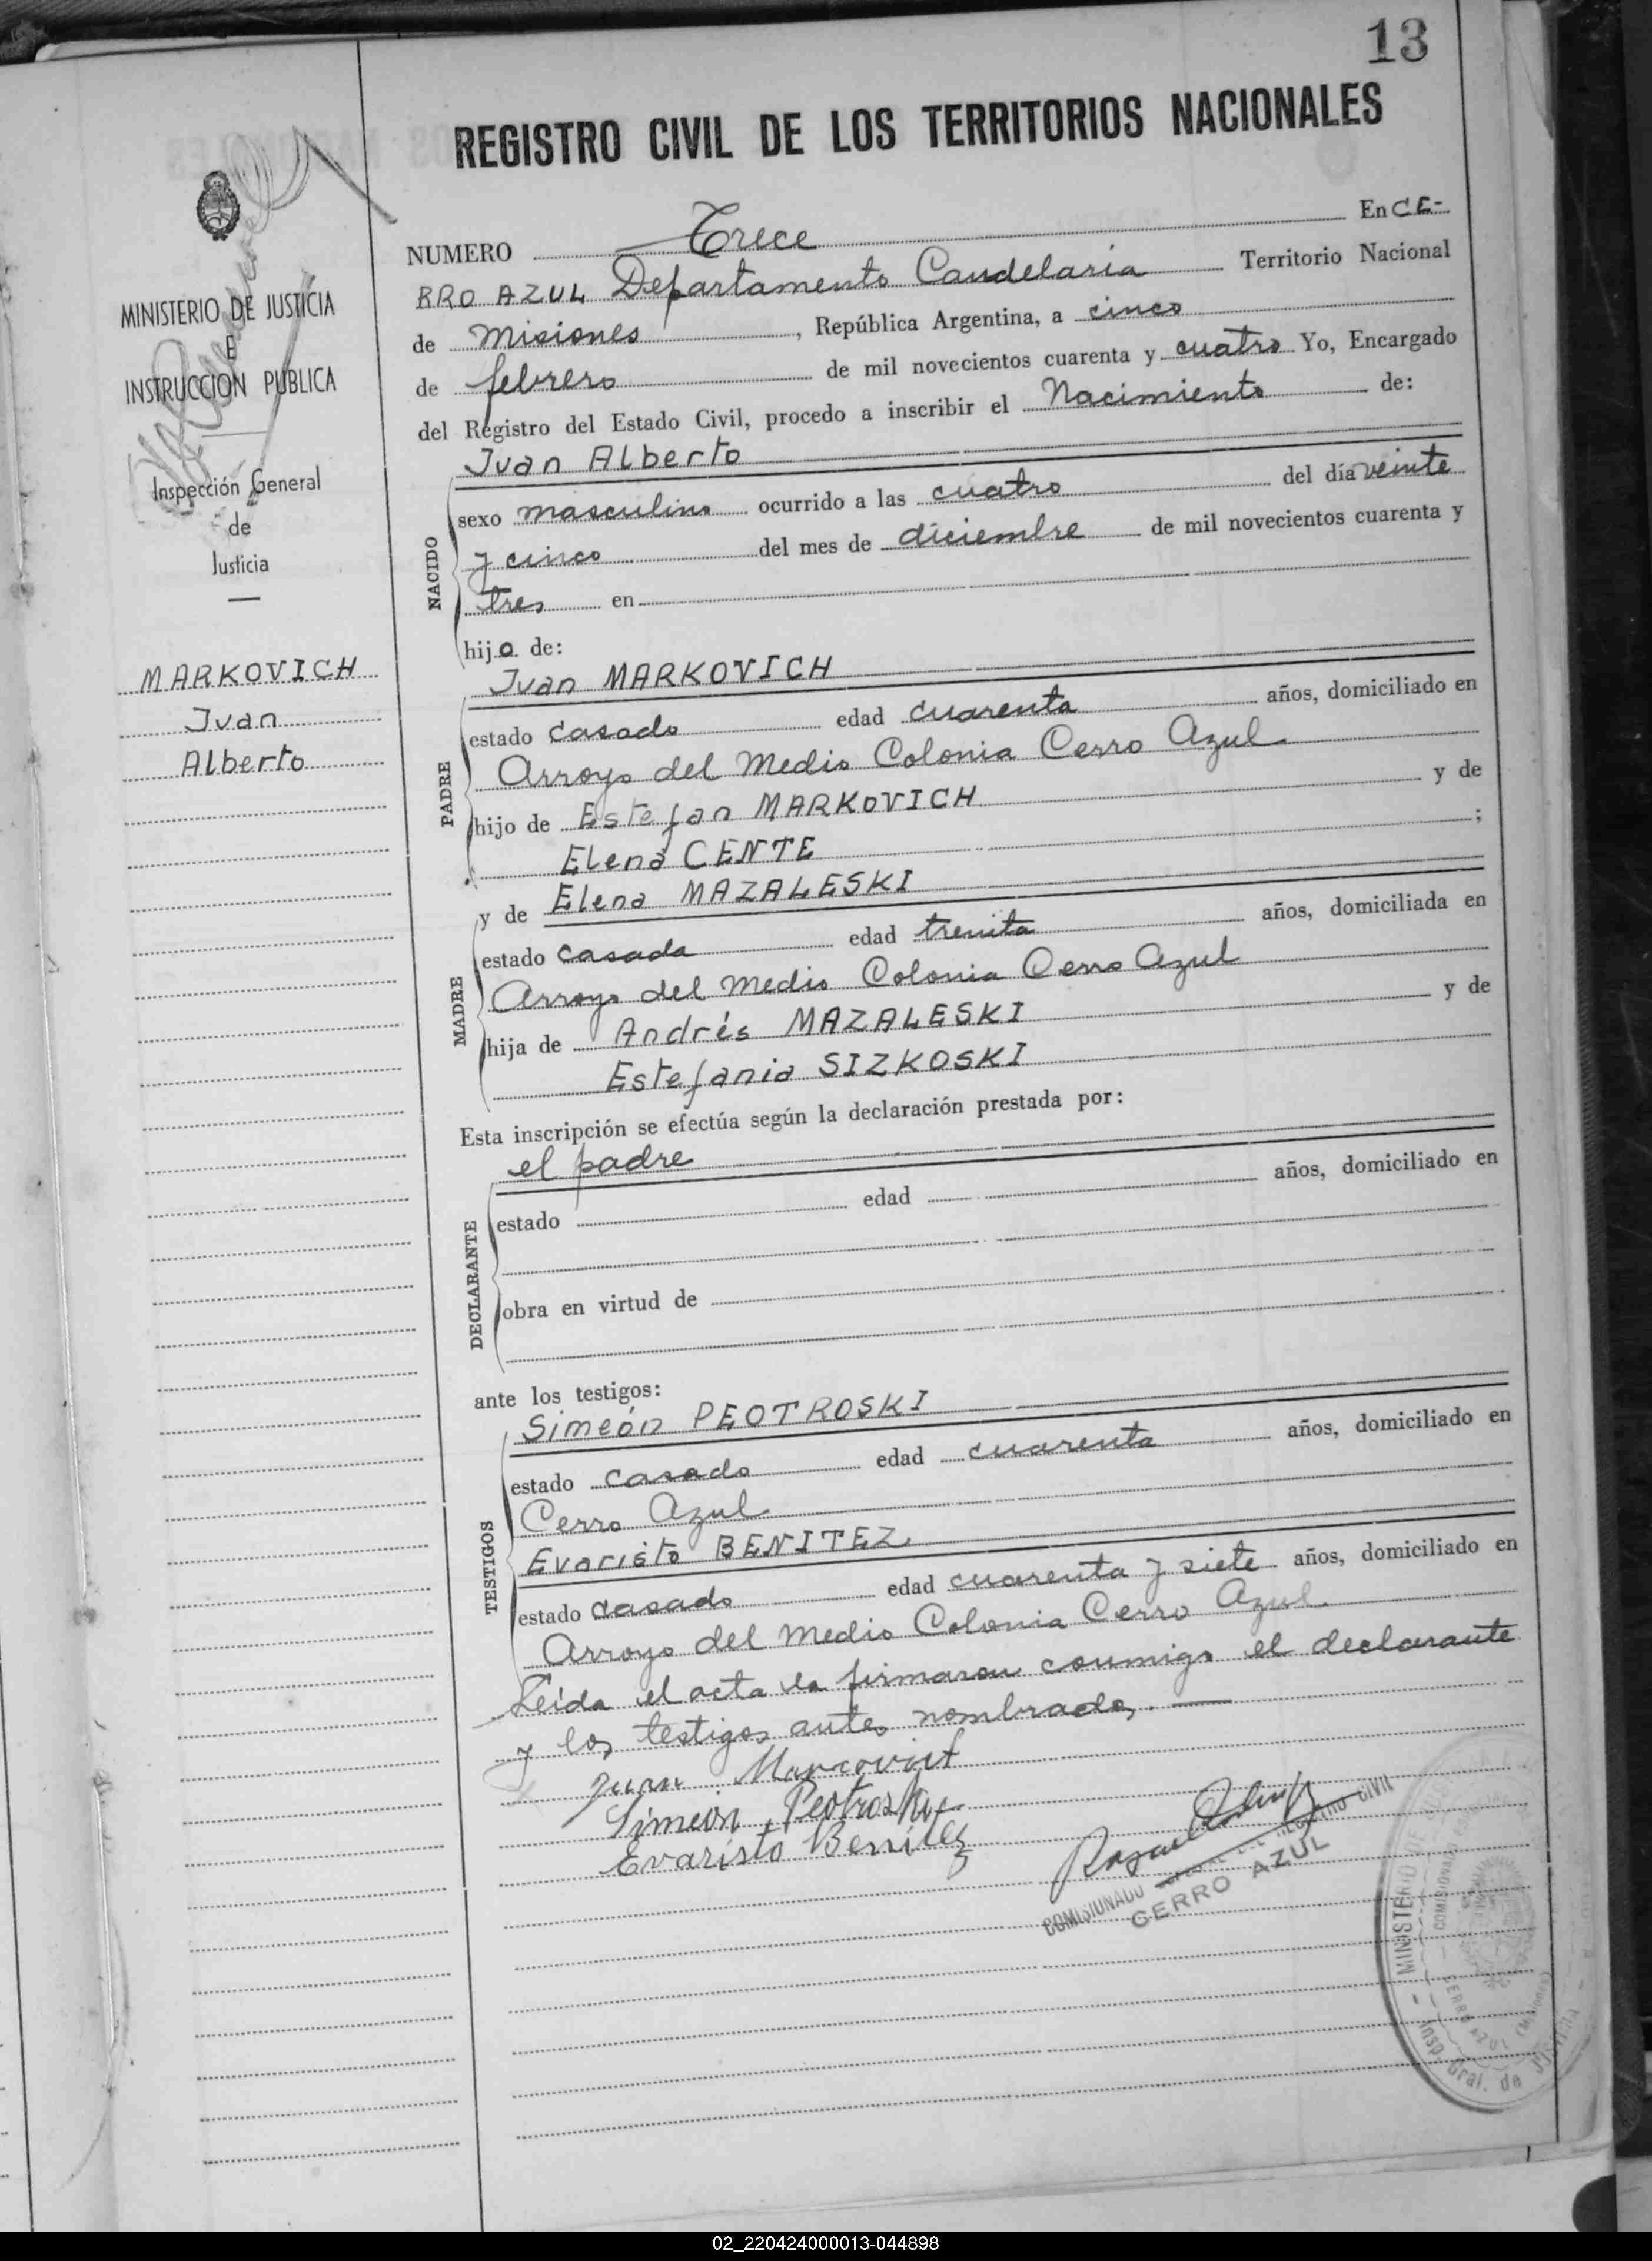 13
REGISTRO CIVIL DE LOS TERRITORIOS NACIONALES
MINISTERIO DE JUSTICIA
E
INSTRUCCION PUBLICA
Inspección General
de
Justicia
MARKOVICH
Juan
Alberto
NUMERO Trece En CE-
RRO AZUL Departamento Candelaria Territorio Nacional
de Misiones, República Argentina, a cinco
de febrero de mil novecientos cuarenta y cuatro Yo, Encargado
del Registro del Estado Civil, procedo a inscribir el Nacimiento de:
NACIDO
Juan Alberto
sexo masculino ocurrido a las cuatro del día veinte
y cinco del mes de diciembre de mil novecientos cuarenta y
tres en
hijo de:
PADRE
Juan MARKOVICH
estado casado edad cuarenta años, domiciliado en
Arroyo del Medio Colonia Cerro Azul
hijo de Estefan MARKOVICH y de
Elena CENTE ;
MADRE
y de Elena MAZALESKI
estado casada edad treinta años, domiciliada en
Arroyo del Medio Colonia Cerro Azul
hija de Andrés MAZALESKI y de
Estefania SIZKOSKI
Esta inscripción se efectúa según la declaración prestada por:
DECLARANTE
el padre
estado edad años, domiciliado en
obra en virtud de
ante los testigos:
TESTIGOS
Simeón PEOTROSKI
estado casado edad cuarenta años, domiciliado en
Cerro Azul
Evaristo BENITEZ
estado casado edad cuarenta y siete años, domiciliado en
Arroyo del Medio Colonia Cerro Azul.
Leida el acta la firmaron conmigo el declarante
y los testigos antes nombrados.
Juan
Simeón Peotrosky
Evaristo Benitez
COMISIONADO REGISTRO CIVIL
CERRO AZUL
MINISTERIO DE
COMISIONADO
CERRO AZUL (Misiones)
Insp. Gral. de Justicia
02_220424000013-044898